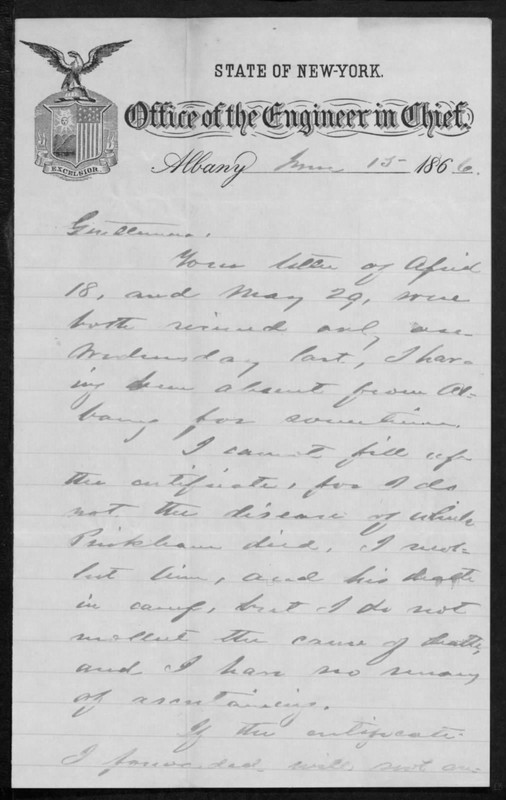 STATE OF NEW-YORK.
Office of the Engineer in Chief.
EXCELSIOR
Albany June 15 1866.
Gentlemen,
Your letters of April
18, and May 29, were
both received only on
Wednesday last, I hav-
ing been absent from Al-
bany for sometime.
I cannot fill up
the certificate, for I do
not the disease of which
died. I recol-
lect him, and his death
in camp, but I do not
recollect the cause of death,
and I have no means
of ascertaining.
If the certificate
I forwarded will not an-